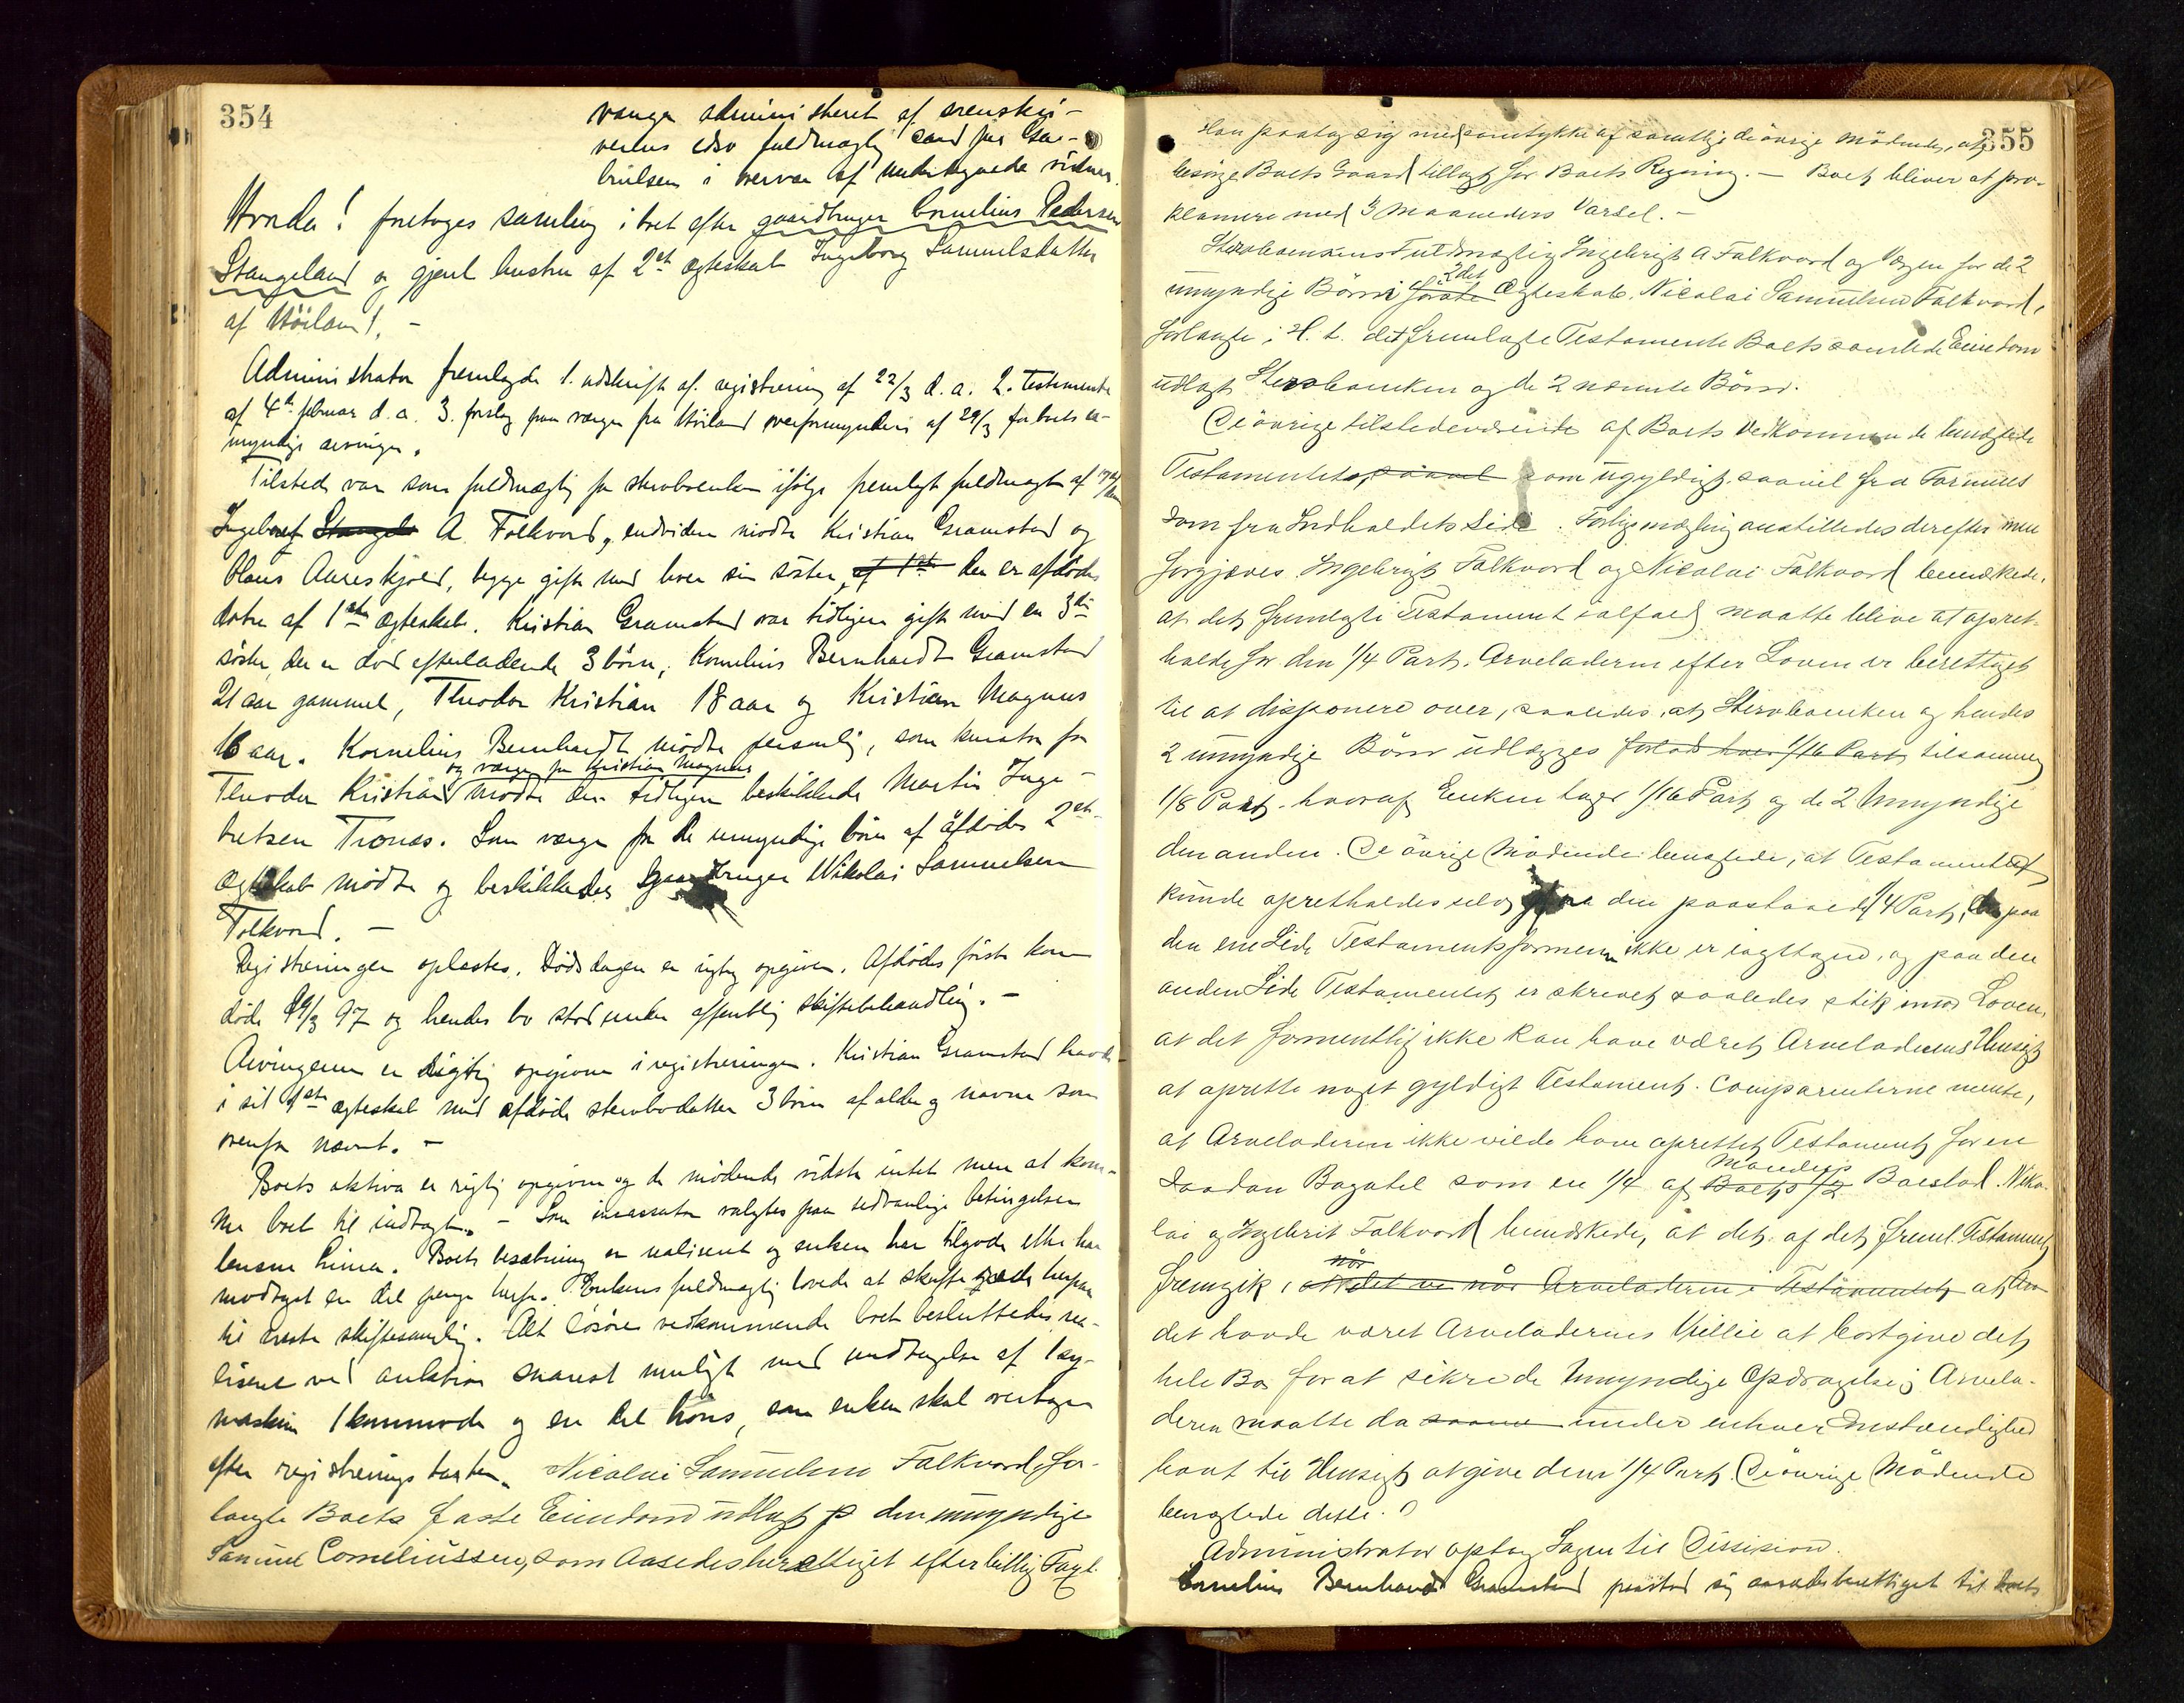 354
vanger administreret af sorenskri-
verens edsv fuldmægtig cand jur Ga-
brielsen i overvær af undertegnede vidner.
Hvorda! foretoges samling i boet efter gaardbruger Cornelius Pedersen
Stangeland og gjenl hustru af 2et ægteskab Ingeborg Samuelsdatter
af Höiland. -
Administrator fremlagde 1. udskrift af registrering af 22/3 d. a. 2. Testamente
af 4de februar d. a. 3. forslag paa værge fra Höiland overformynderi af 29/3 for boets u-
myndige arvinger.
Tilstede var som fuldmægtig for sterbboenken ifölge fremlagt fuldmagt af
Ingebret Stangel A. Folkvord, endvidere mödte Kristian Gramstad og
Hans Aareskjold, begge gift med hver sin söster, af 1ste der er afdödes
dötre af 1ste ægteskab. Kristian Gramstad var tidligere gift med en 3die
söster, der er död efterladende 3 börn, Kornelius Bernhardt Gramstad
21 aar gammel, Theodor Kristian 18 aar og Kristian Magnus
16 aar. Kornelius Bernhardt mödte personlig, som kurator for
og værge for Kristian Magnus
Theodor Kristian mödte den tidligere beskikkede Martin Inge-
bretsen Tronæs. Som værge for de umyndige börn af afdödes 2et
ægteskab mödte og beskikkedes gaardbruger Nikolai Samuelsen
Folkvord. -
Registreringen oplæstes. Dödsdagen er rigtig opgiven. Afdödes förste kone
döde 19/3 97 og hendes bo stod under offentlig skiftebehandling. -
Arvingerne er rigtig opgivne i registreringen. Kristian Gramstad havde
i sit 1ste ægteskab med afdöde sterbbodatter 3 börn af alder og navne som
ovenfor nævnt. -
Boets aktiva er rigtig opgivne og de mödende vidste intet mere at kom-
me boet til indtægt. - Som incassator valgtes paa sedvanlige betingelser
lensm Hinna. Boets besætning er realiseret og enken har tilgode eller har
modtaget en del penge herfor. Enkens fuldmægtig lovede at skaffe rede herpaa
til næste skiftesamling. Alt lösöre vedkommende boet besluttedes rea-
liseret ved auktion snarest muligt med undtagelse af 1 sy-
maskin 1 kommode og en del höns, som enken skal overtage
efter registreringstaxten. Nicolai Samuelsen Folkvord for-
langte Boets faste Eiendom udlagt p den umyndige
Samuel Corneliussen, som Aasædesberettiget efter billig Taxt.
355
Han paatog sig med samtykke af samtlige de övrige Mödende, at
besörge Boets Gaard tillagt for Boets Regning. - Boet bliver at pro-
klamere med 3 Maaneders Varsel. -
Sterbboenkens Fuldmægtig Ingebrigt A Falkvord og Vergen for de 2
2det
umyndige Börn i förste Ægteskab, Nicolai Samuelsen Falkvord,
forlangte i H. t. det fremlagte Testamente Boets samlede Eiendom
udlagt Sterbboenken og de 2 nævnte Börn.
De övrige tilstedeværende af Boets Vedkommende benægtede
Testamentets, saavel som ugyldigt saavel fra Formens
som fra Indholdets Side. Forligsmægling anstilledes derefter men
forgjæves. Ingebrigt Falkvord og Nicolai Falkvord bemærkede,
at det fremlagte Testament ialfald maatte blive at opret-
holde for den 1/4 Part, Arveladeren efter Loven er berettiget
til at disponere over, saaledes, at Sterbboenken og hendes
2 umyndige Börn udlægges forlods hver 1/16 Part, tilsammen
1/8 Part, hvoraf Enken tager 1/16 Part og de 2 Umyndige
den anden. De övrige Mödende benægtede, at Testamentet
kunde opretholdes selv for den paastaaede 1/4 Part, da paa
den ene Side Testamentsformerne ikke er iagttagne, og paa den
anden Side Testamentet er skrevet saaledes stik imod Loven,
at det formentlig ikke kan have været Arveladerens Hensigt
at oprette noget gyldigt Testament. Comparenterne mente,
at Arveladeren ikke vilde have oprettet Testament for en
Mandens
saadan Bagatel som en 1/4 af Boets 1/2 Boeslod. Niko-
lai og Ingebrit Falkvord bemærkede, at det af det freml. Testament
når
fremgik, at det havde været Arveladernes Villie at bortgive det
hele Bo for at sikre de Umyndige Opdragelse; Arvela-
deren maatte da saaver under enhver Omstændighed
havt til Hensigt at give dem 1/4 Part. De övrige Mödende
benægtede dette.
Administrator optog Sagen til Decision.
Cornelius Bernhardt Gramstad paastod sig aasædesberettiget til boets